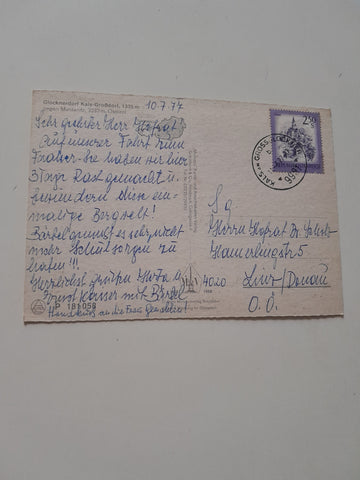 Glocknerdorf Kals-Großdorf, 1325 m
gegen Muntanitz, 3232 m, Osttirol
10.7.77
Sehr geehrter Herr Hofrat!
Auf unserer Fahrt zum
haben wir hier
3 Tage Rast gemacht u.
bewundern diese ein-
malige Bergwelt!
Bärbel genießt es sehr nicht
mehr Schulsorgen zu
haben!!!
Herzlichst grüßen Herta u.
Ernst mit Bärbel
Handkuss an die Frau Gemahlin!
P 181 058
2.50
KALS AM GROSSGLOCKNER
S.g.
Herrn Hofrat Dr.
Hamerlingstr 5
4020 Linz/Donau
O.Ö.